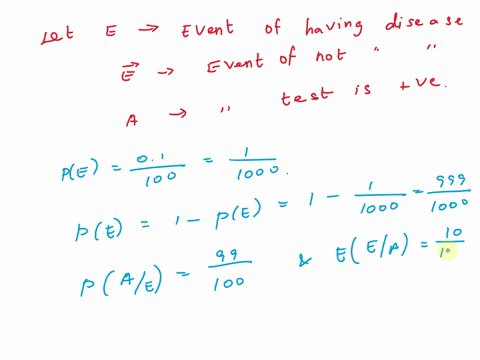 Let E → Event of having disease
E̅ → Event of not " "
A → " test is +ve.
P(E) = 0.1/100 = 1/1000.
P(E) = 1 - P(E) = 1 - 1/1000 = 999/1000
P(A/E) = 99/100 & E(E/A) = 10/10